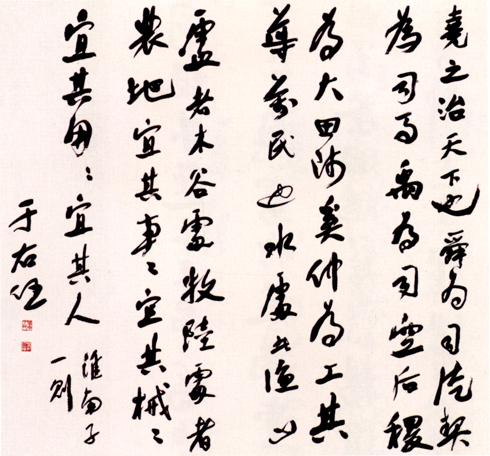 堯之治天下也舜為司徒契
為司馬禹為司空后稷
為大田師奚仲為工其
導萬民也水處者漁山
處者木谷處牧陸處者
農地宜其事〻宜其械〻
宜其用〻宜其人
淮南子
一則
于右任